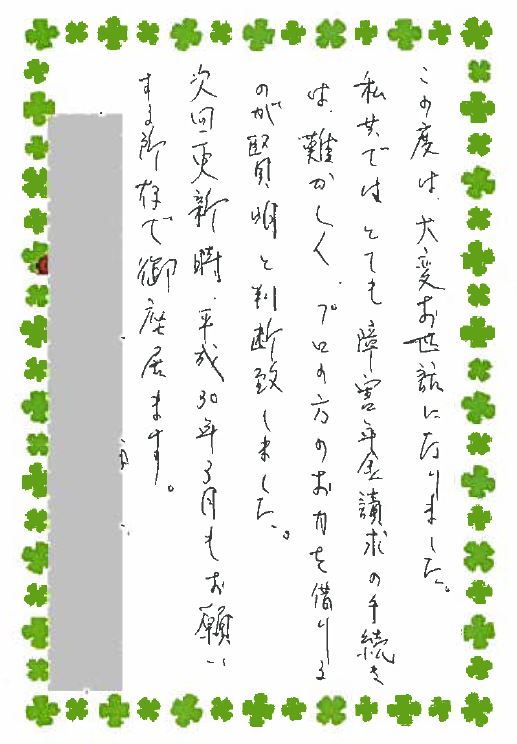 この度は、大変お世話になりました。
私共ではとても障害年金請求の手続き
は、難かしく、プロの方のお力を借りる
のが賢明と判断致しました。
次回更新時、平成30年3月もお願い
する所存で御座居ます。